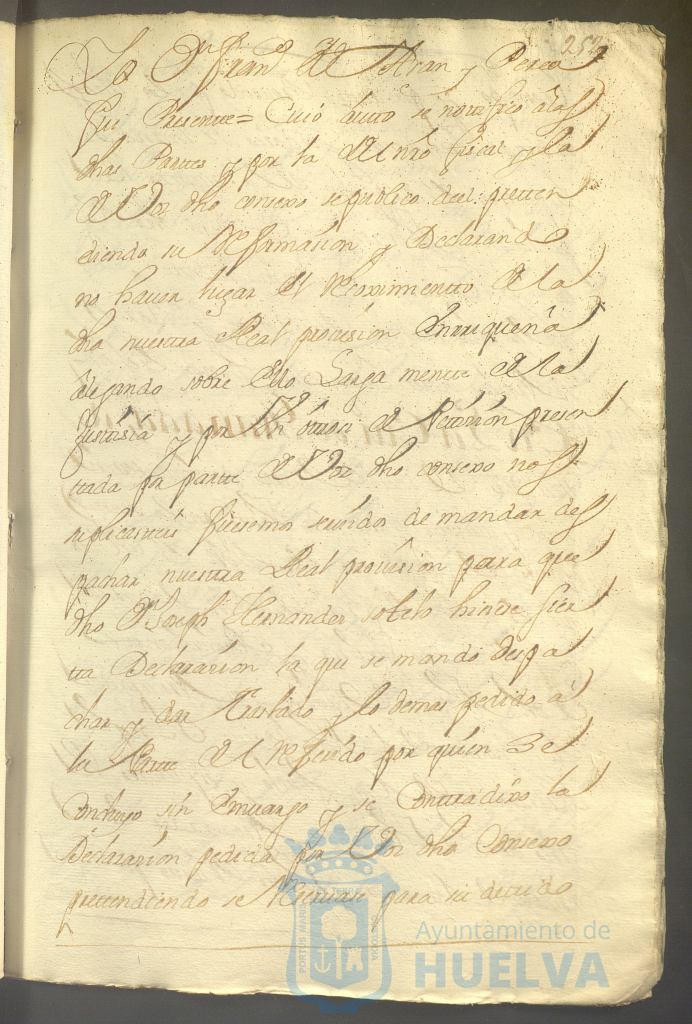 252
Lo Dn Fran.co de Teran y Perea
fui Presente = Cuió auto se notifico alas
dhas Partes y por la del nro fiscal y la
de Vos dho consexo se suplico del preten
diendo su Reformasion y Declarand
no haver lugar el Recoximientto de la
dha nuestra Real provision Enrriqueña
alegando sobre ello Larga mente de la
Justisia y por Un ottrosi de Petision presen
tada por parte de Vos dho consexo nos
suplicasteis fuesemos servidos de mandar des
pachar nuestra Real provision para que
dho Dn Joseph Hernandes sotelo hiciese sier
ta Declarasion la que se mando despa
char y dar Traslado y lo demas pedido a
la Parte del Referido por quien se
Concluyo sin Embargo y se Contradixo la
Declarasion pedida por Vos dho Consexo
prettendiendo se Reservase para su devido
PORTUS MARIS
ET TERRE
CUSTODIA
Ayuntamiento de
HUELVA